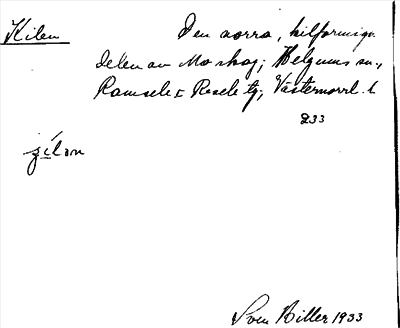 Kilen
Den norra, kilformiga
delen av Mo skog; Helgums sn.,
Ramsele o Resele tg; Västernorrl. l
233
Sven Hiller 1933